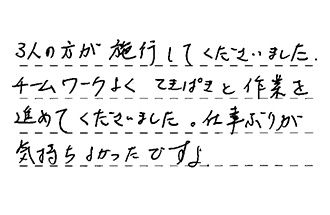 3人の方が施行してくださいました.
チームワークよく てきぱきと作業を
進めてくださいました。仕事ぶりが
気持ちよかったですよ